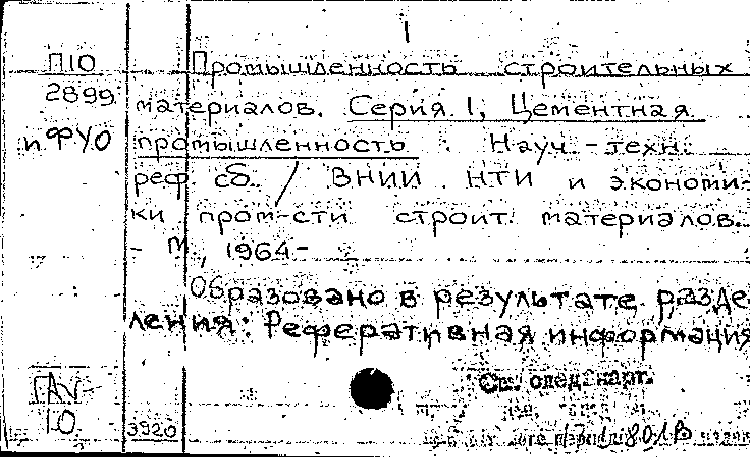 1
П10
Промышленность строительных
2899
материалов. Серия 1, Цементная
и ФУО
промышленность : Науч.-техн.
реф. сб. / ВНИИ НТИ и экономи-
ки пром-сти строит. материалов.
- М., 1964-
Образовано в результате разде
ления: Реферативная информация
См. след. карт.
ГАУ-
10
3920
801В